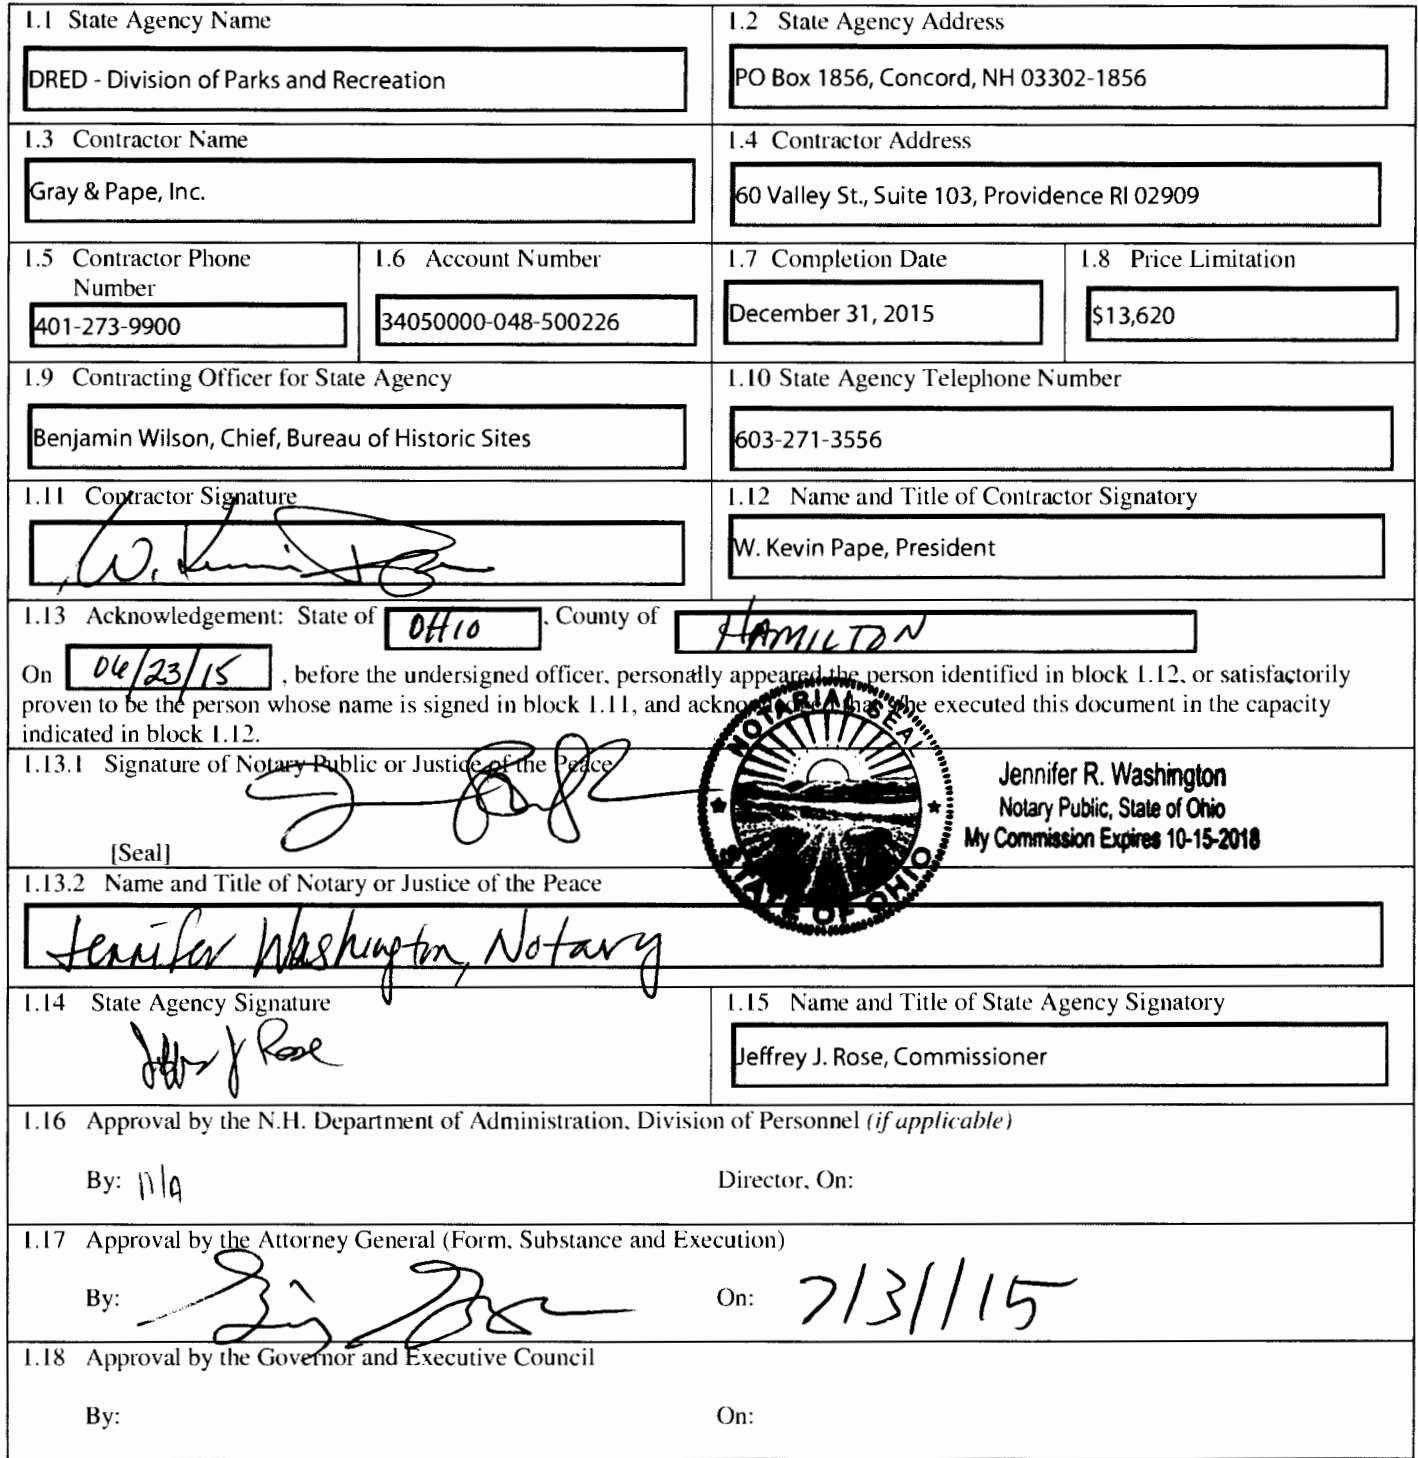 1.1 State Agency Name
DRED - Division of Parks and Recreation
1.2 State Agency Address
PO Box 1856, Concord, NH 03302-1856
1.3 Contractor Name
Gray & Pape, Inc.
1.4 Contractor Address
60 Valley St., Suite 103, Providence RI 02909
1.5 Contractor Phone
Number
401-273-9900
1.6 Account Number
34050000-048-500226
1.7 Completion Date
December 31, 2015
1.8 Price Limitation
$13,620
1.9 Contracting Officer for State Agency
Benjamin Wilson, Chief, Bureau of Historic Sites
1.10 State Agency Telephone Number
603-271-3556
1.11 Contractor Signature
W. Kevin Pape
1.12 Name and Title of Contractor Signatory
W. Kevin Pape, President
1.13 Acknowledgement: State of OHIO , County of HAMILTON
On 06/23/15 , before the undersigned officer, personally appeared the person identified in block 1.12, or satisfactorily
proven to be the person whose name is signed in block 1.11, and he executed this document in the capacity
indicated in block 1.12.
1.13.1 Signature of Notary Public or Justice of the Peace
[Seal]
NOTARIAL SEAL
STATE OF OHIO
Jennifer R. Washington
Notary Public, State of Ohio
My Commission Expires 10-15-2018
1.13.2 Name and Title of Notary or Justice of the Peace
Jennifer Washington, Notary
1.14 State Agency Signature
Jeffrey J Rose
1.15 Name and Title of State Agency Signatory
Jeffrey J. Rose, Commissioner
1.16 Approval by the N.H. Department of Administration, Division of Personnel (if applicable)
By: n/a
Director, On:
1.17 Approval by the Attorney General (Form, Substance and Execution)
By:
On: 7/31/15
1.18 Approval by the Governor and Executive Council
By:
On: